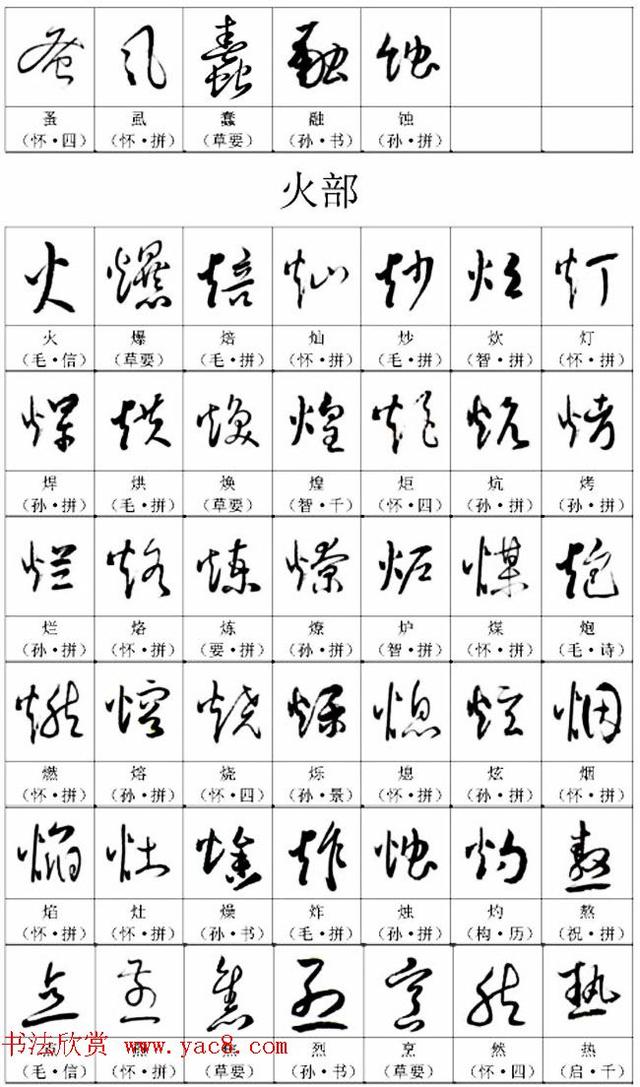 蚤 虱 蠢 融 蚀
(怀·四) (怀·拼) (草要) (孙·书) (孙·拼)
火部
火 爆 焙 灿 炒 炊 灯
(毛·信) (草要) (毛·拼) (怀·拼) (毛·拼) (智·拼) (怀·拼)
焊 烘 焕 煌 炬 炕 烤
(孙·拼) (毛·拼) (草要) (智·千) (怀·四) (孙·拼) (孙·拼)
烂 烙 炼 燎 炉 煤 炮
(孙·拼) (怀·拼) (要·拼) (孙·拼) (智·拼) (怀·拼) (毛·诗)
燃 熔 烧 烁 熄 炫 烟
(怀·拼) (孙·拼) (怀·四) (孙·景) (怀·拼) (孙·拼) (怀·拼)
焰 灶 燥 炸 烛 灼 熬
(怀·拼) (怀·拼) (孙·书) (毛·拼) (孙·拼) (构·历) (祝·拼)
烈 烹 然 热
(毛·信) (怀·拼) (草要) (孙·书) (草要) (怀·四) (启·千)
书法欣赏 www.yac8.com